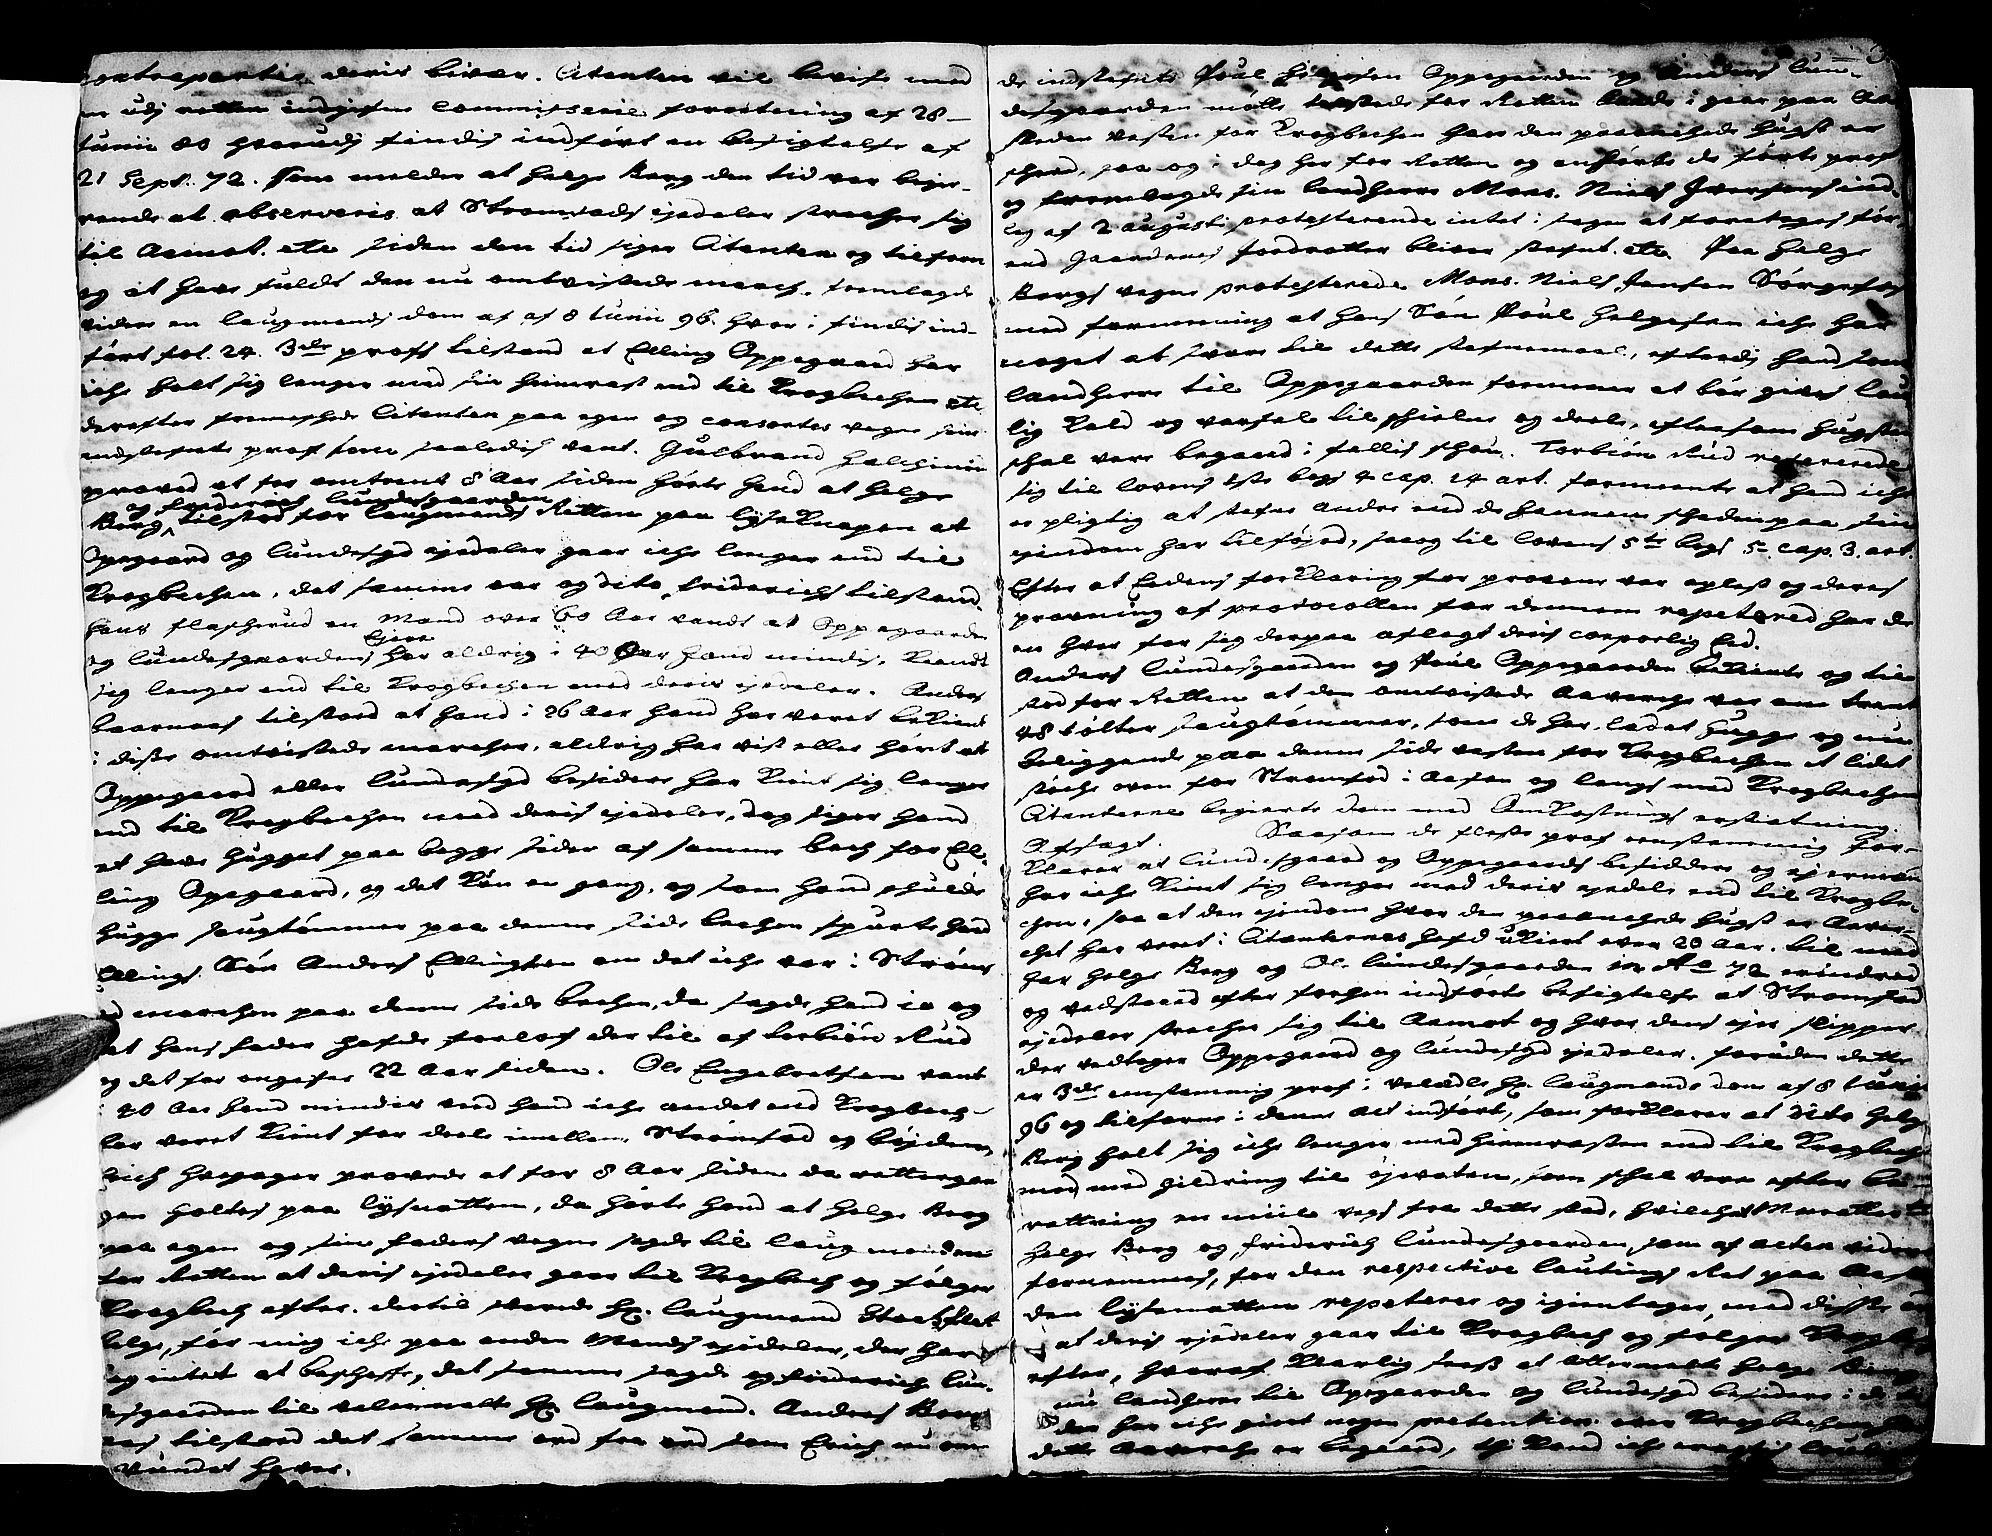 Contraparties deris bivær. Citanten vil bevise med
en udj retten indgifven Commisserie forretning af 28
Junii 80 hvorudj findis indført en besigtelse af
21 Sept. 72. som melder at Helge Berg den tid var begie-
rende at observeris at Strømsøds ejedeler strecher sig
til Aamot. etc siden den tid siger Citanten og tilforn
og at have fuldt den nu omtvistede march. fremlagde
viden en laugmands dom af af 8 Junii 96. hvor i findis ind-
ført fol. 24. 3de prof tilstand at Elling Oppegaard har
iche holt sig lenger med sin heimrast end til Krogbechen etc
derefter fremeschede Citanten paa egen og consortes vegne sine
indstefnte prof som saaledis vant. Gulbrand Halchinrø
proved at for omtrent 8 Aar siden hørte hand at Helge
og Frederich Lundesgaarden
Berg tilstod for laugmands Retten paa Lyse Knapen at
Opegaard og Lundesgd ejedeler gaar iche lenger end til
Krogbechen, det samme var og dito Friderichs tilstand.
Hans Flascherud en Mand over 60 Aar vandt at Oppegaarden
Ejere
og Lundesgaardens har aldrig i 40 Aar hand mindis, kiendt
sig lenger end til Krogbechen med deris ejedeler. Anders
Baarnaas tilstod at hand i 26 Aar hand har veret bekiendt
i diste omtvistede marcher, aldrig har vist eller hørt at
Oppegaard eller Lundesgd besidere har kient sig lenger
end til Krogbechen med deris ejedeler, dog siger hand
at have hugget paa begge sider af samme bech for El-
ling Opegaard, og det kun en gang, og som hand schulde
hugge saugtømmer paa denne side bechen spurte hand
Ellings Søn Anders Ellingsen om det iche var i Strøms-
ød marchen paa denne side bechen, da sagde hand io og
at hans fader hafde forlof der til af Torbiøn Rud
og det for ongefer 22 Aar siden. Ole Engebretsen vant
i 40 Aar hand mindis ved hand iche andet end Krogbech-
har veret kient for deele imellem Strømsød og bøjden,
Erich Haapager provede at for 8 Aar siden da rettergan-
gen holtes paa Lysnatten, da hørte hand at Helge Berg
paa egen og sin faders vegne sagde til laugmanden
for Retten at deris ejedeler gaar til Krogbech og følger
Krogbech efter. dertil svarede Hr. laugmand Stochflet
Helge, før mig iche paa anden Mands ejedeler, der har
jeg intet at bescheffe, det samme sagde og Friderich Lun-
desgaarden til velermelte Hr. laugmand. Anders Baar-
naas tilstod det samme ord fra ord som Erich nu om
vundet haver.
de indstefnte Poul Helgesen Oppegaarden og Anders Lun-
desgaarden møtte tilstede for Retten baade i gaar paa Aa-
steden vesten for Krogbechen hvor den paaanchede Hugst er
scheed, saa og i dag her for Retten og anhørte de førte prof
og fremlagde sin landherre Mons. Niels Iversens ind-
leg af 2 augusti protesterende intet i sagen at foretages før-
end Gaardenes fordrotter bliver stefnt. etc. Paa Helge
Bergs vegne protesterede Mons. Niels Jensen Sørgefos
med formeening at hans Søn Poul Helgesen iche har
noget at svare til dette stefnemaal, eftersdj hand som
landherre til Oppegaarden formener at bør gives lau-
lig Kald og varsel til schielne og deele, eftersom hugsten
schal vere begaaed i fellis schou. Torbiøn Rud refererede
sig til lovens 1ste bogs 4 cap. 14 art. formeente at hand iche
er pligtig at stefne andre end de hannem scheden paa sin
eiendom har tilføjed, saa og til lovens 5te bogs 5 cap. 3. art.
Efter at Eedens forklaring for provene var oplest og deres
provning af protocollen for dennem repetered har de
en hver for sig derpaa aflagt deris corporlig Eed.
Anders Lundesgaarden og Poul Oppegaarden bekiente og til-
stod for Retten at den omtvistede Aavirche var om trent
48 tølter saugtømmer, som de har ladet hugge og nu
beliggende paa denne side vesten for Krogbechen et lidet
støche oven for Strømsød i Aasen og langs med Krogbechen
Citanterne begierte dom med Omkostnings erstatning.
Afsagt. Saasom de fleste prof eenstemmig for-
klarer at Lundesgaard og Oppegaards besiddere og ejermæn
har iche kient sig lenger med deris ejedele end til Krogbe-
chen, saa at den ejendom hvor den paaanchede hugst er Aaver-
chet har veret i Citanternes hæfd ukiert over 20 Aar. til med
har Helge Berg og Ole Lundesgaarden in Ao 72 erindred
og vedstaaed efter forhen indførte besigtelse at Strømsød
ejedeler strecher sig til Aamot og hvor dens ejer slipper
der vedtager Oppegaard og Lundesgd ejedeler. foruden dette
er 3de eenstemmig prof i velædle Hr. laugmands dom af 8 Junij
96 og tilforne i denne act indført, som forklarer at dito Helge
Berg holt sig iche lenger med hiemrasten end til Krogbech
men med gildring til ejvaten, som schal vere efter be-
retning en miil vejs fra dette sted, hvilchet Meermelte
Helge Berg og Friderich Lundesgaarden, som af acten videre
fornemmes, for den respective lautings Ret paa Aaste-
den Lysenatten repeterer og igientager, med disse ord
at deris ejedeler gaar til Krogbech og følger Krogbech
efter, hvoraf klarlig sees at ommelte Helge Berg
nu landherre til Opegaarden og Lundesgd besidere i de
der har iche giort nogen pretention over Krogbechen før
dette Aaverche er begaaed, thi kand iche eragtis